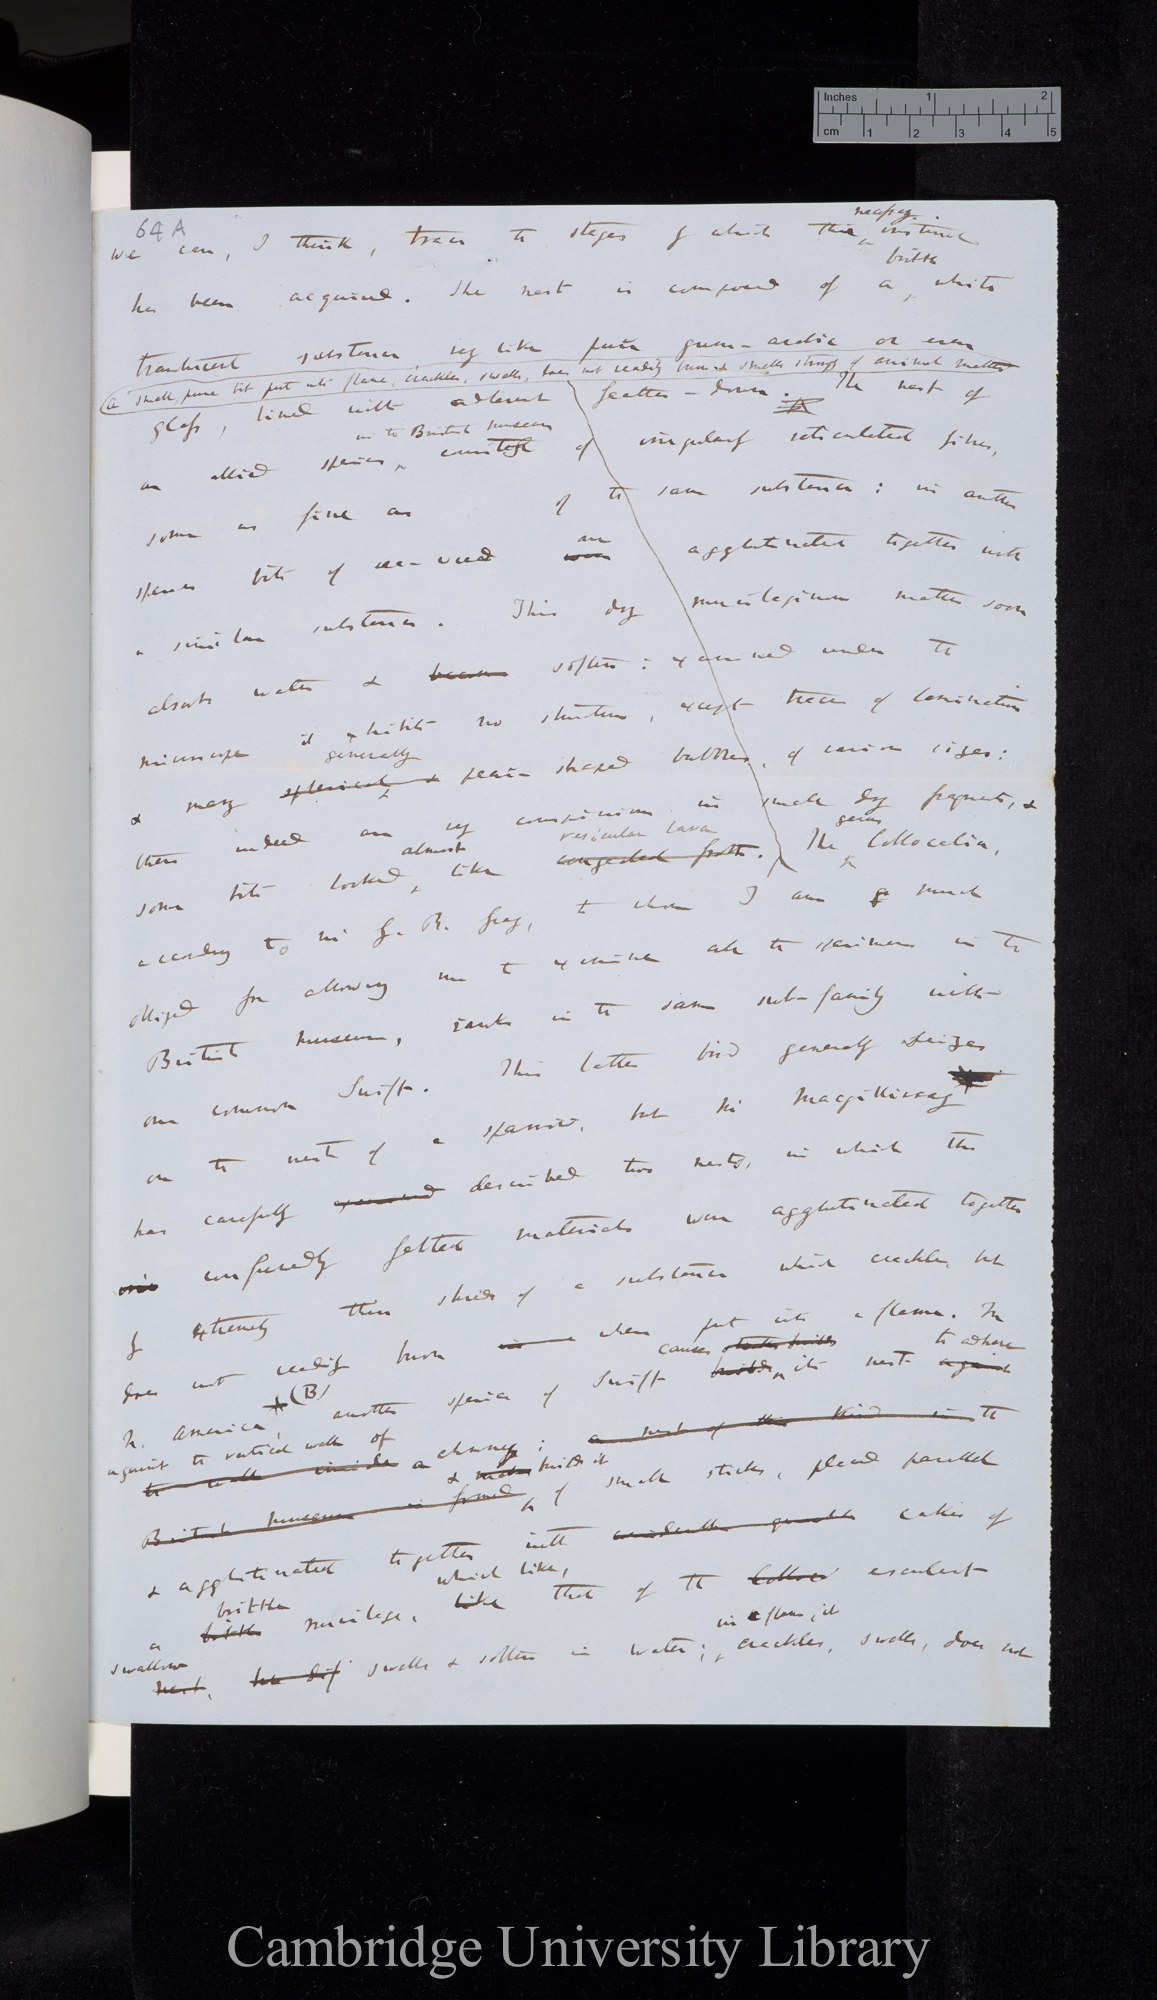 Inches 1 2
cm 1 2 3 4 5
64 A
necessary
we can, I think, trace the stages by which this instinct
brittle
has been acquired. The nest is composed of a white
translucent substance very like pure gum-arabic or even
a small, pure bit put into flame, crackles, swells, does not readily burn & smells strong of animal matter
glass, lined with adherent feather-down. The nest of
in the British Museum
an allied species consists of irregularly reticulated fibres,
some as fine as of the same substance: in another
are
species bits of sea-weed are agglutinated together with
a similar substance. This dry mucilaginous matter soon
absorbs water & becomes softens: examined under the
microscope it exhibits no structure, except traces of lamination
generally
& many spherical & pear-shaped bubbles, of various sizes:
these indeed are very conspicuous in small dry fragments, &
almost vesicular lava genus
some bits looked like congealed froth. The Collocalia,
according to Mr G. R. Gray, to whom I am much
obliged for allowing me to examine all the specimens in the
British Museum, ranks in the same sub-family with
our common Swift. This latter bird generally seizes
on the nest of a sparrow, but Mr Macgillivray
has carefully examined described two nests, in which the
confusedly felted materials were agglutinated together
by extremely thin shreds of a substance which crackles but
does not readily burn when put into a flame. In
causes to adhere
N. America (B) another species of Swift builds its nest against
against the vertical walls of
the walls inside a chimney; a nest of this kind in the
& builds it
British Museum is formed of small sticks, placed parallel
& agglutinated together with cakes of
brittle which like,
a brittle mucilage, like that of the esculent
swallow in a flame, it
nest, swells & softens in water; crackles, swells, does not
Cambridge University Library